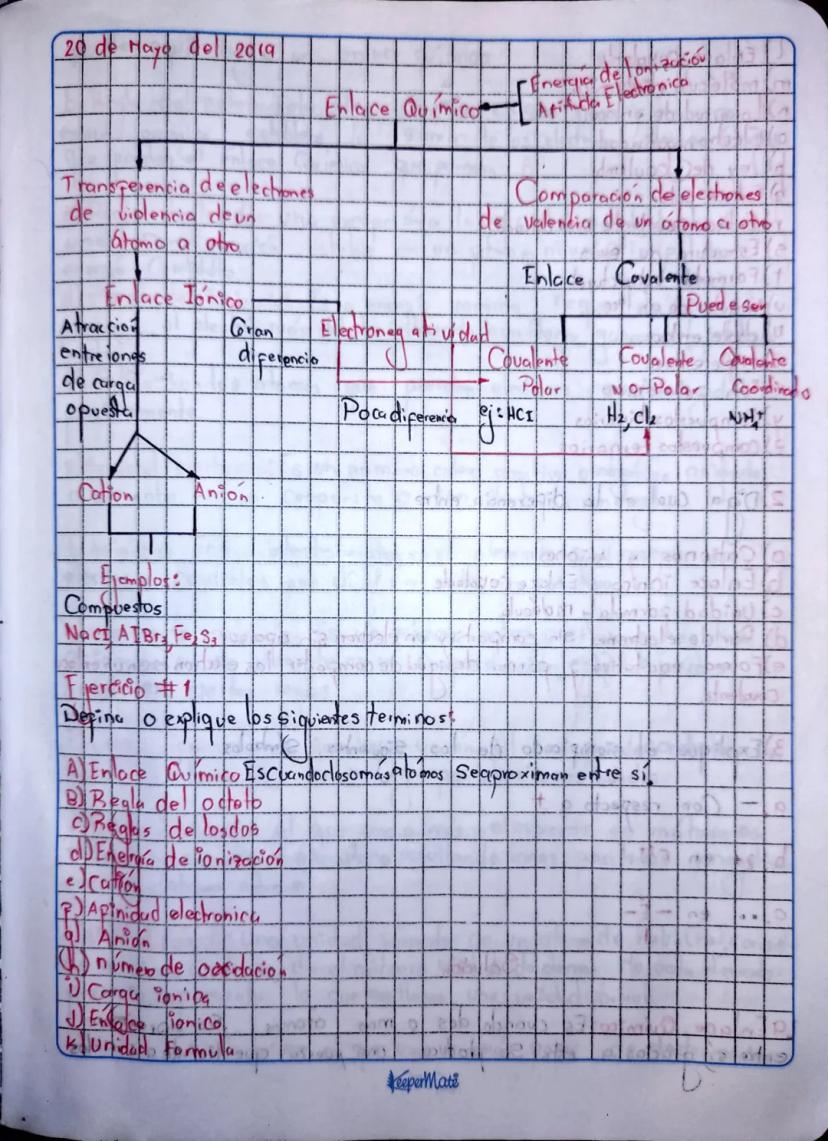 20 de Mayo del 2019
Energía de Ionización
Enlace Químico
Afifida Electronica
Transferencia de electrones
de violencia de un
átomo a otro
Comparación de electrones
de valencia de un átomo a otro
Enlace Covalente
Puede ser
Enlace Iónico
Atracción
entre iones
de carga
opuesta
Gran
diferencia
Electronegatividad
Poca diferencia
Covalente
Polar
ej: HCl
Covalente
no-Polar
H2, Cl2
Covalente
Coordinado
NH4+
Cation
Anión
Ejemplos:
Compuestos
NaCl, AlBr3, Fe2S3
Ejercicio #1
Defina o explique los siguientes terminos:
A) Enlace Químico Es cuando dos o más atómos se aproximan entre sí.
B) Regla del octoto
c) Reglas de los dos
d) Energía de ionización
e) Catión
f) Afinidad electronica
g) Anión
h) número de oxidación
i) Carga ionica
J) Enlace ionico
K) Unidad Formula
KeeperMate